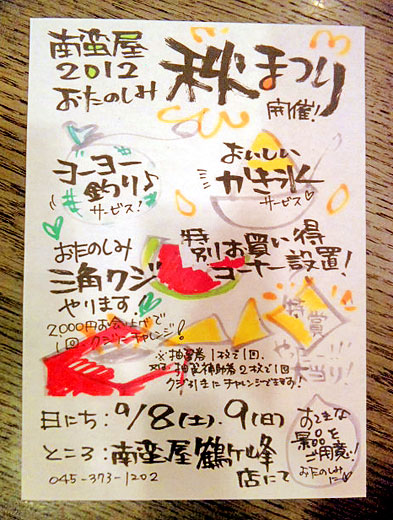 南蛮屋
2012
おたのしみ
秋まつり
開催!
ヨーヨー
釣り♪
サービス!
おいしい
かき氷
サービス♡
おたのしみ
三角クジ
やります!
2000円お会計で
1回クジにチャレンジ!
特別お買い得
コーナー設置!
特賞
大当り!
※抽選券1枚で1回
又は抽選補助券2枚で1回
クジ引きにチャレンジできます!
日にち:9/8(土).9(日)
ところ:南蛮屋鶴ヶ峰
店にて
045-373-1202
すてきな
景品を
ご用意!
おたのしみ
に♡